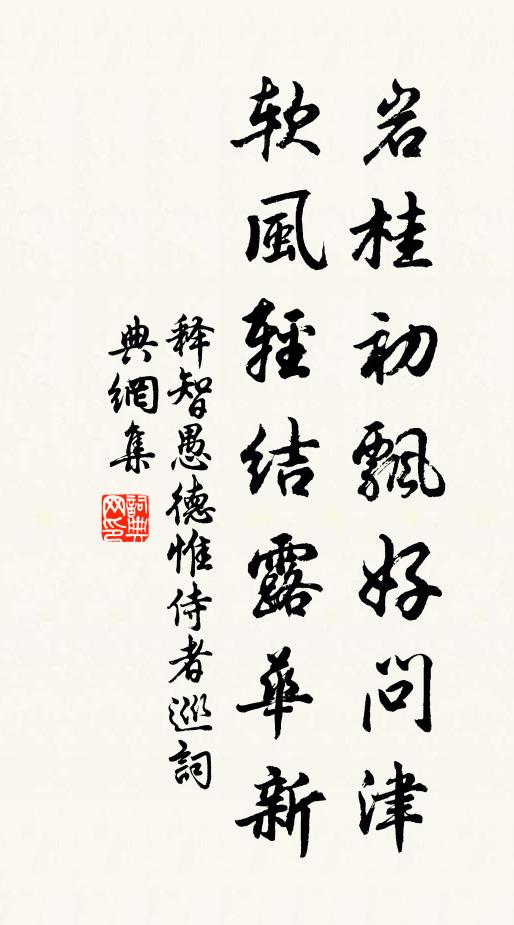 岩桂初飄好問津
軟風輕結露華新
释智愚德惟侍者巡詞
典網集
詞典網印